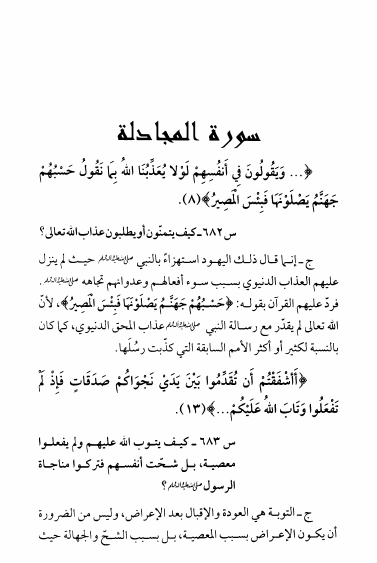 سورة المجادلة
﴿... وَيَقُولُونَ فِي أَنفُسِهِمْ لَوْلا يُعَذِّبُنَا اللهُ بِمَا نَقُولُ حَسْبُهُمْ
جَهَنَّمُ يَصْلَوْنَهَا فَبِئْسَ الْمَصِيرُ﴾(٨).
س ٦٨٢ ـ كيف يتمنّون أو يطلبون عذاب الله تعالى؟
ج ـ إنـما قـال ذلـك اليهـود استهـزاءً بالنبي صلى الله عليه وآله وسلم حيـث لم ينزل
عليهم العذاب الدنيوي بسبب سوء أفعالهـم وعدوانهم تجاهه صلى الله عليه وآله وسلم.
فردّ عليهم القرآن بقولـه: ﴿حَسْبُهُمْ جَهَنَّمُ يَصْلَوْنَهَا فَبِئْسَ الْمَصِيرُ﴾، لأنّ
الله تعالى لم يقدّر مع رسالـة النبي صلى الله عليه وآله وسلم عذاب المحق الدنيوي، كما كان
بالنسبة لكثير أو أكثر الأمم السابقة التي كذّبت رسُلَها.
﴿أَأَشْفَقْتُمْ أَن تُقَدِّمُوا بَيْنَ يَدَيْ نَجْوَاكُمْ صَدَقَاتٍ فَإِذْ لَمْ
تَفْعَلُوا وَتَابَ اللهُ عَلَيْكُمْ...﴾(١٣).
س ٦٨٣ ـ كـيـف يتـوب الله عليهـم ولم يفعلـوا
معصيـة، بـل شـحّت أنفسـهم فتركـوا مناجـاة
الرسول صلى الله عليه وآله وسلم؟
ج ـ التوبة هي العودة والإقبال بعد الإعراض، وليس من الضرورة
أن يكون الإعراض بسبب المعصيـة، بـل بسبب الشحّ والجهالة حيث